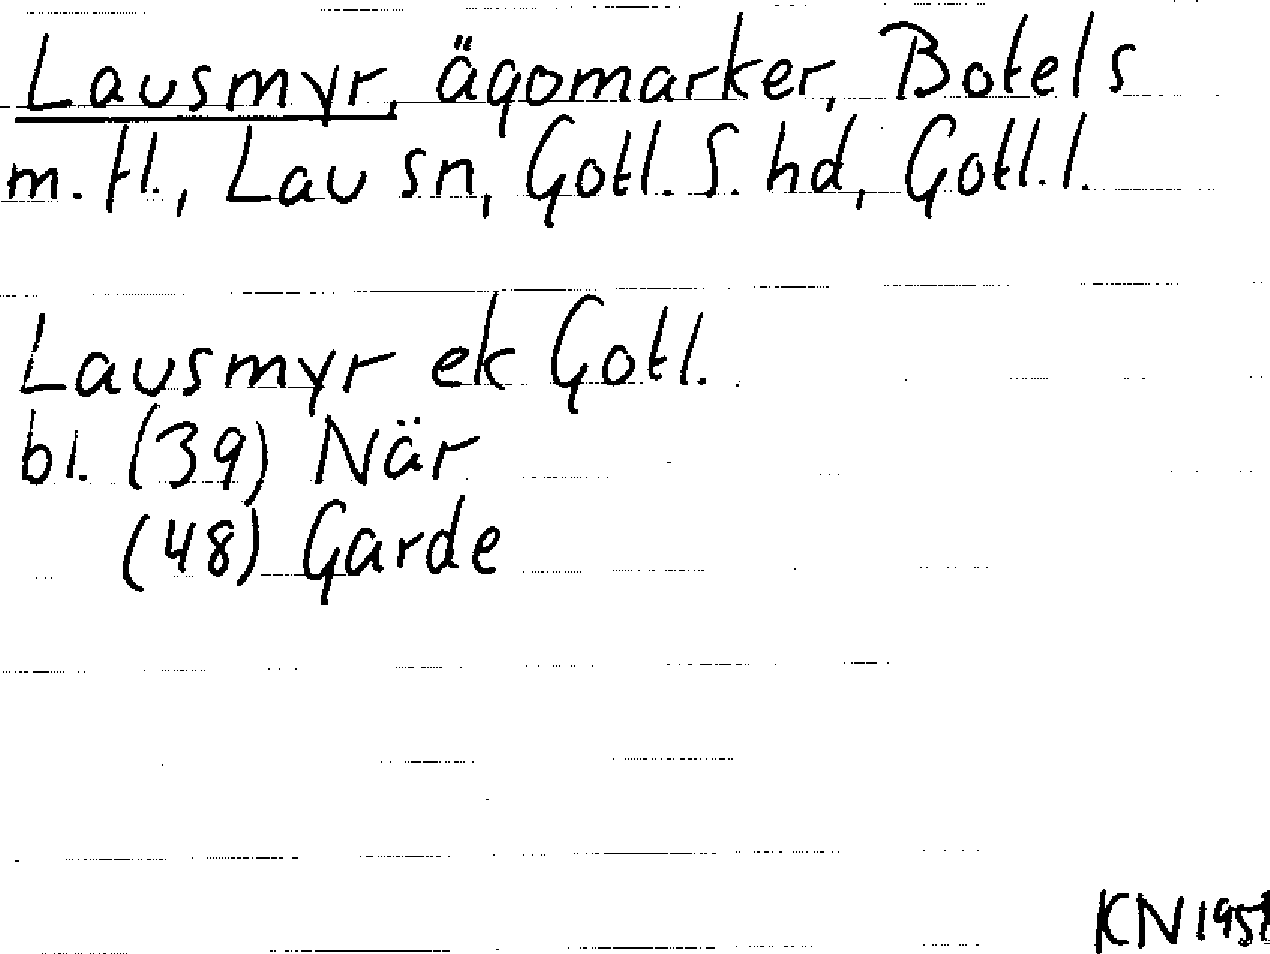 Lausmyr, ägomarker, Botels
m. fl., Lau sn, Gotl. S. hd, Gotl. l.
Lausmyr ek Gotl.
bl. (39) När
(48) Garde
KN 1951